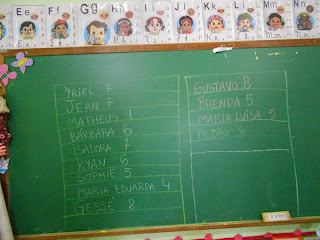 Ee Ff Gg Hh Ii Jj Kk Ll Mm Nn
YRIEL 7
JEAN 7
MATHEUS 9
BÁRBARA 6
ISADORA 7
RYAN 6
SOPHIE 5
MARIA EDUARDA 4
GESSÉ 8
GUSTAVO 8
BRENDA 5
MARIA LUÍSA 5
PEDRO 6